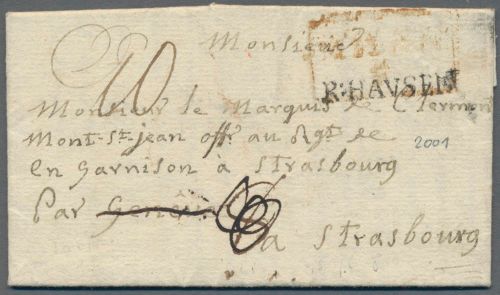 Monsieur
R:HAVSEN
Monsieur le Marquis de Clermon
Mont-St-jean offr au Rgt de
en Garnison à Strasbourg
2001
Par
a Strasbourg